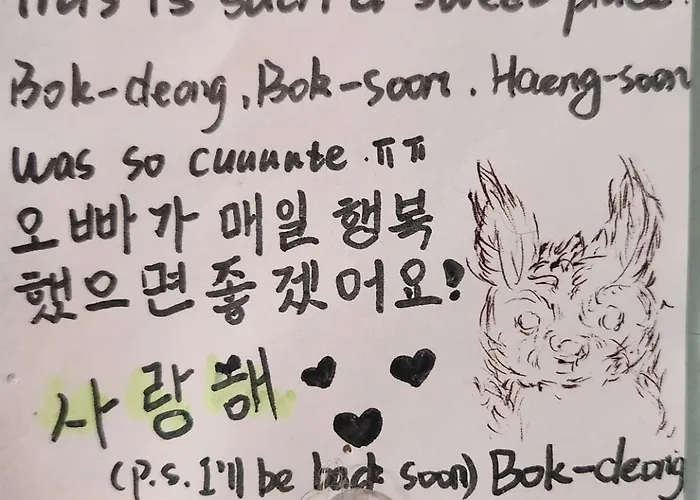 This is such a sweet place!
Bok-deong, Bok-soon, Haeng-soon
was so cuuuute ㅠㅠ
오빠가 매일 행복
했으면 좋겠어요!
사랑해
(p.s. I'll be back soon) Bok-deong